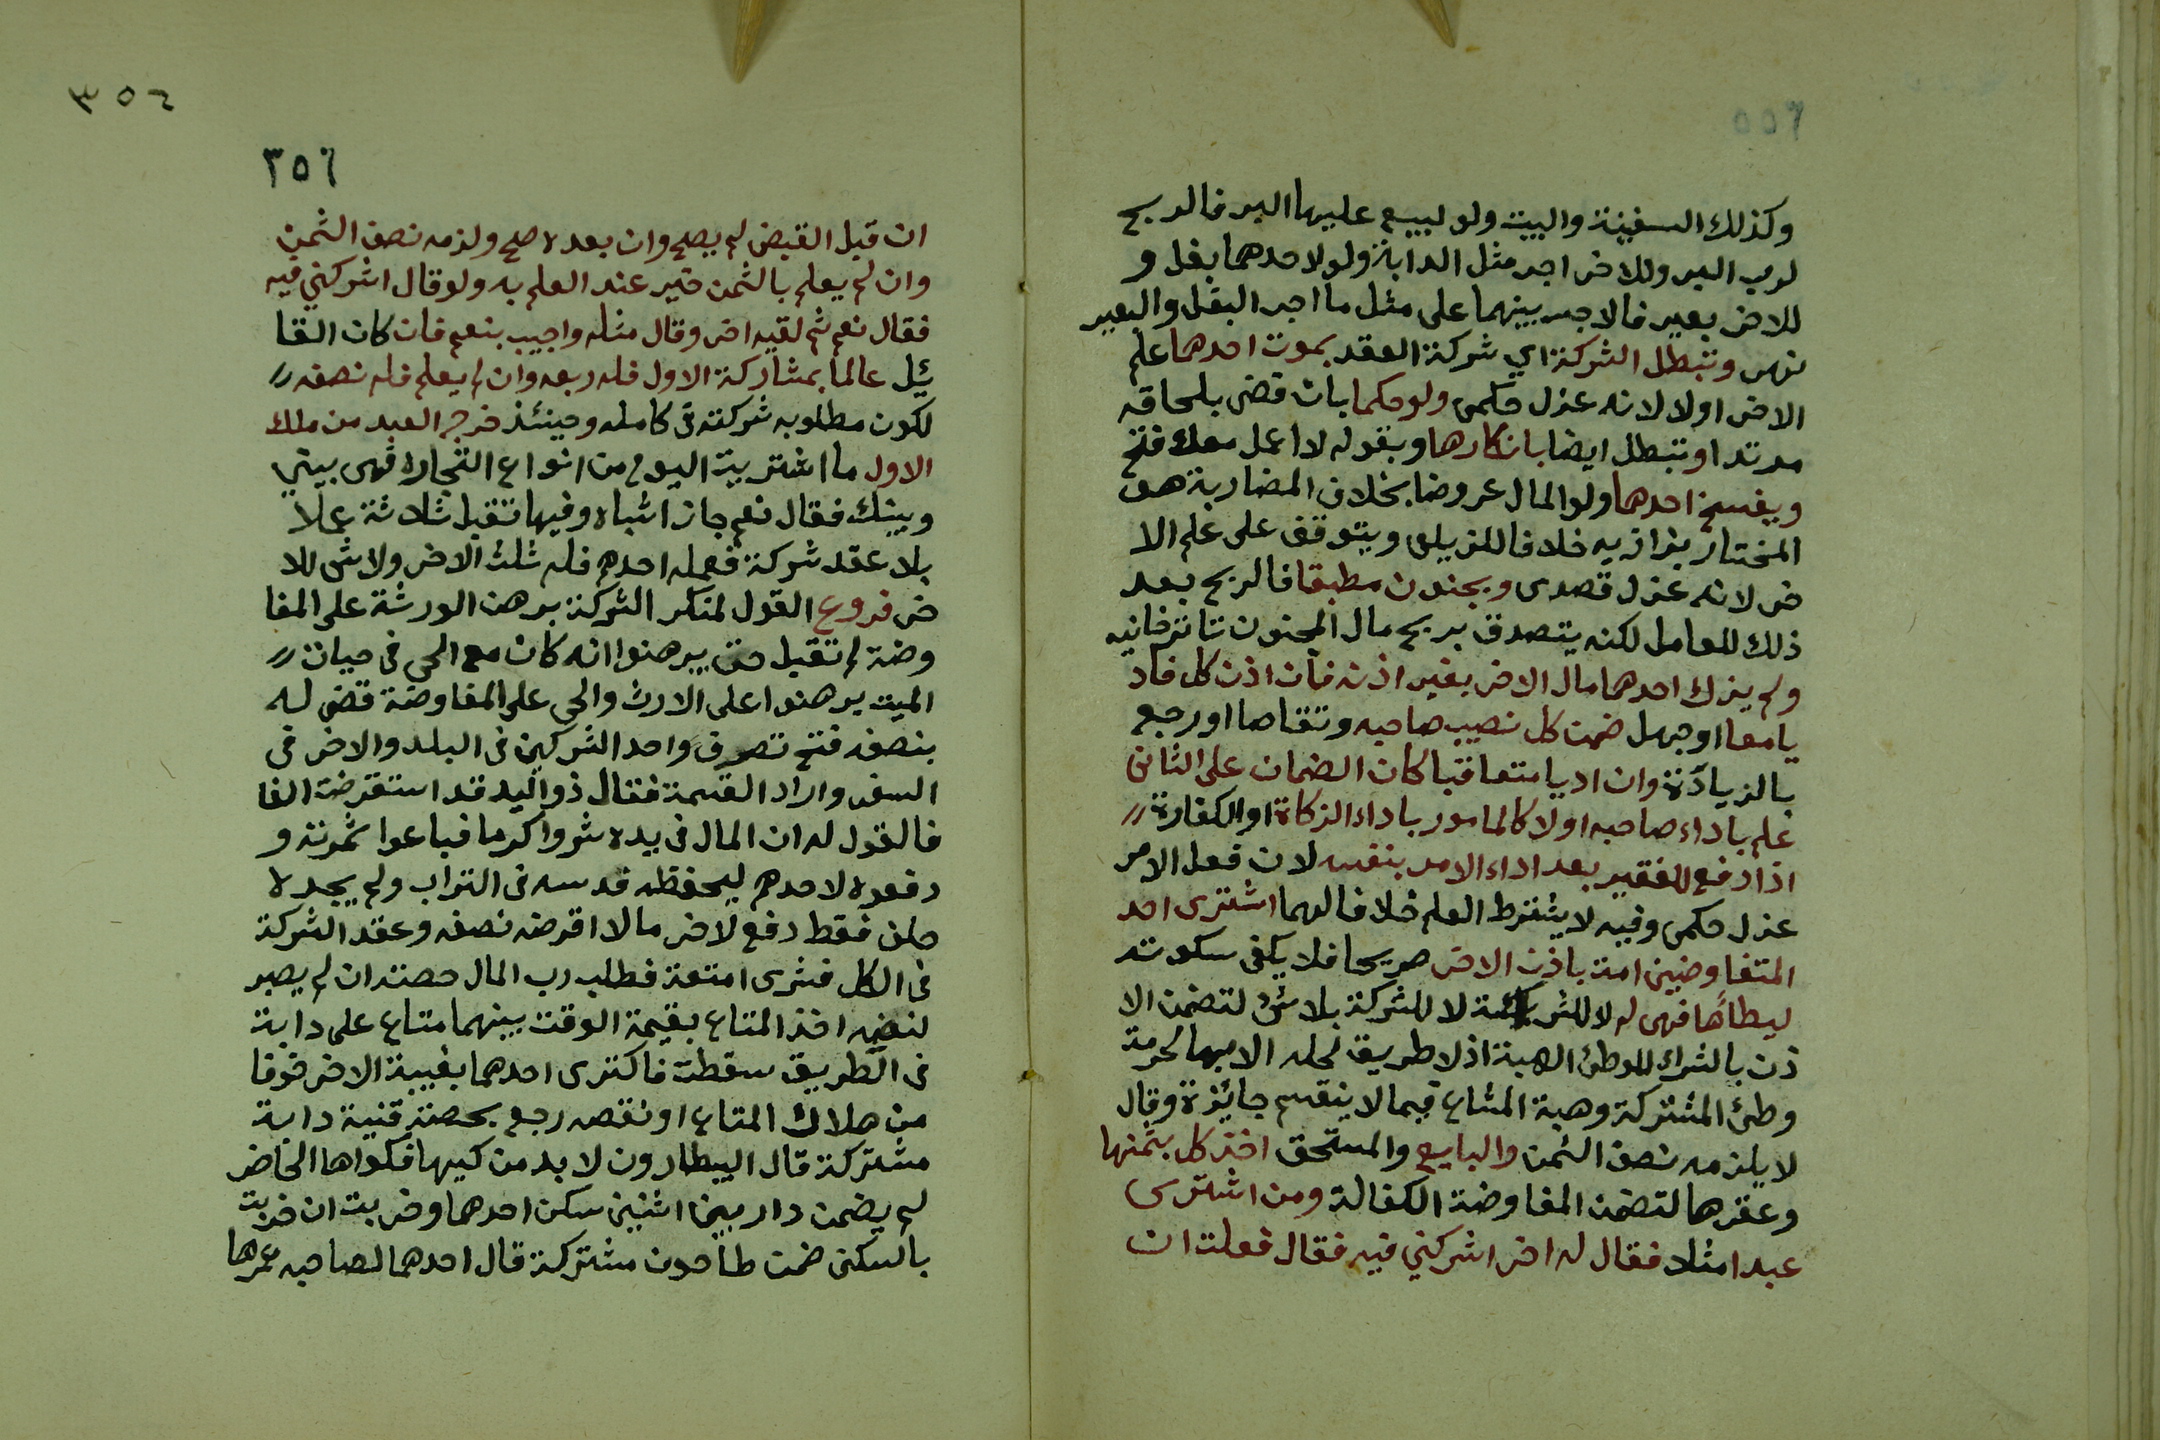 ٥٥٦
وكذلك السفينة والبيت ولو لبيع عليها البر فالربح
لرب البر وللاخر اجر مثل الدابة ولو لاحدهما بغل و
للاخر بعير فالاجر بينهما على مثل ما اجر البغل والبعير
نهر وتبطل الشركة اي شركة العقد بموت احدهما علم
الاخر اولا لانه عزل حكمى ولو حكما بان قضى بلحاقه
مرتدا وتبطل ايضا بانكارها وبقوله لا اعمل معك فتح
ويفسخ احدهما ولو المال عروضا بخلاف المضاربة هو
المختار بزازيه خلافا للزيلعى ويتوقف على علم الا
خر لانه عزل قصدى وبجنون مطبقا فالربح بعد
ذلك للعامل لكنه يتصدق بربح مال المجنون تاترخانيه
ولم يزك احدهما مال الاخر بغير اذنه فان اذن كل فاد
يا معا او جهل ضمن كل نصيب صاحبه وتقاصا او رجع
بالزيادة وان اديا متعاقبا كان الضمان على الثانى
علم باداء صاحبه اولا كالمامور باداء الزكاة او الكفارة
اذا دفع للفقير بعد اداء الامر بنفسه لان فعل الامر
عزل حكمى وفيه لا يشترط العلم خلافا لهما اشترى احد
المتفاوضين امة باذن الاخر صريحا فلا يكفى سكوته
ليطاها فهى له لا للشركة لا للشركة بلا شئ لتضمن الا
ذن بالشراء للوطئ الهبة اذ لا طريق لحله الا بها لحرمة
وطئ المشتركة وهبة المشاع فيما لا ينقسم جايزة وقال
لا يلزمه نصف الثمن والبايع والمستحق اخذ كل بثمنها
وعقرها لتضمن المفاوضة الكفالة ومن اشترى
عبدا مثلا فقال له اخر اشركني فيه فقال فعلت ان
٣٥٤
٣٥٦
ان قبل القبض لم يصح وان بعده صح ولزمه نصف الثمن
وان لم يعلم بالثمن خير عند العلم به ولو قال اشركني فيه
فقال نعم ثم لقيه اخر وقال مثله واجيب بنعم فان كان القا
ئل عالما بمشاركة الاول فله ربعه وان لم يعلم فله نصفه
لكون مطلوبه شركته فى كامله وحينئذ خرج العبد من ملك
الاول ما اشتريت اليوم من انواع التجارة فهى بيني
وبينك فقال نعم جاز اشباه وفيها تقبل ثلاثة عملا
بلا عقد شركة فعمله احدهم فله ثلث الاخر ولا شى للا
خر فروع القول لمنكر الشركة برهن الورثة على المفا
وضة لم تقبل حتى يبرهنوا انه كان مع الحي فى حيات
الميت برهنوا على الارث والحي على المفاوضة قضى له
بنصفه فتح تصرف واحد الشركين فى البلد والاخر فى
السفر واراد القسمة فقال ذو اليد قد استقرضة الفا
فالقول له ان المال فى يده شروا كرما فباعوا ثمرته و
دفعوه لاحدهم ليحفظه فدسه فى التراب ولم يجده
حلف فقط دفع لاخر مالا اقرضه نصفه وعقد الشركة
فى الكل فشرى امتعة فطلب رب المال حصته ان لم يصبر
لنضه اخذ المتاع بقيمة الوقت بينهما متاع على دابة
فى الطريق سقطت فاكترى احدهما بغيبة الاخر خوفا
من هلاك المتاع او نقصه رجع بحصته قنية دابة
مشتركة قال البيطارون لا بد من كيها فكواها الحاضر
لم يضمن دار بين اثنين سكن احدهما وخربت ان خربت
بالسكنى ضمن طاحون مشتركة قال احدهما لصاحبه عمرها